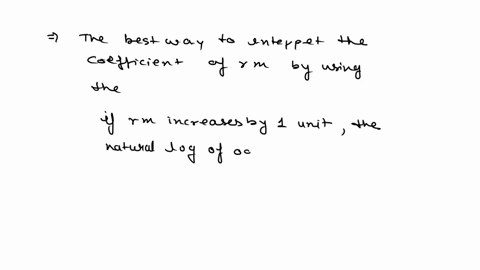 ⇒ The best way to inteppet the
coefficient of rm by using
the
if rm increases by 1 unit, the
natural log of oc